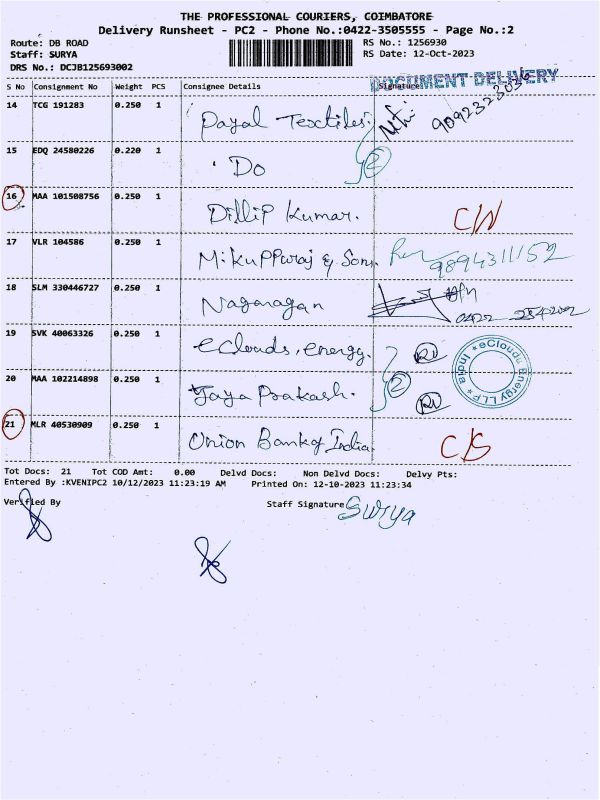 THE PROFESSIONAL COURIERS, COIMBATORE
Delivery Runsheet - PC2 - Phone No.:0422-3505555 - Page No.:2
Route: DB ROAD RS No.: 1256930
Staff: SURYA RS Date: 12-Oct-2023
DRS No.: DCJB125693002
DOCUMENT DELIVERY
S No Consignment No Weight PCS Consignee Details Signature
14 TCG 191283 0.250 1 Payal Textiles. 9092323036
15 EDQ 24580226 0.220 1 Do 2
16 MAA 101508756 0.250 1 Dillip Kumar. C/N
17 VLR 104586 0.250 1 M. Kuppuraj & Sons 9894311152
18 SLM 330446727 0.250 1 Naganagan 0422
19 SVK 40063326 0.250 1 eClouds, energy.
eCloudu Energy LLP * India *
20 MAA 102214898 0.250 1 Jaya Prakash. 2
21 MLR 40530909 0.250 1 Union Bank of India C/S
Tot Docs: 21 Tot COD Amt: 0.00 Delvd Docs: Non Delvd Docs: Delvy Pts:
Entered By :KVENIPC2 10/12/2023 11:23:19 AM Printed On: 12-10-2023 11:23:34
Verified By Staff Signature Surya